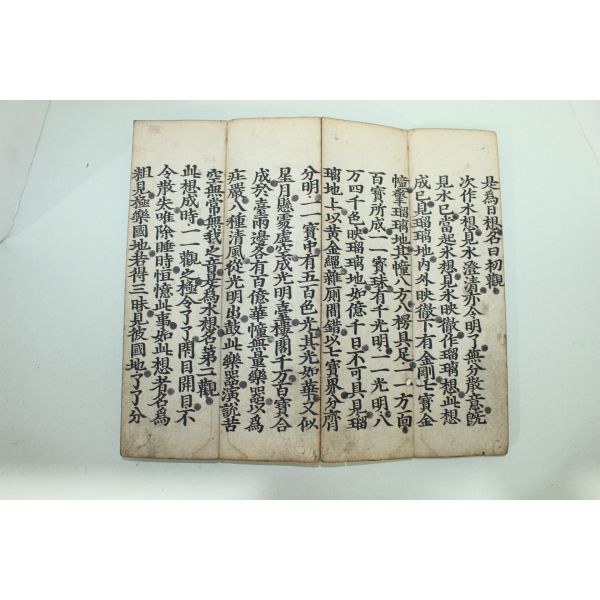 是爲日想名曰初觀
次作水想見水澄清亦令明了無分散意既
見水已當起氷想見氷映徹作瑠璃想此想
成已見瑠璃地內外映徹下有金剛七寶金
幢擎瑠璃地其幢八方八楞具足一一方面
百寶所成一一寶珠有千光明一一光明八
万四千色映瑠璃地如億千日不可具見瑠
璃地上以黃金繩雜厠間錯以七寶界分齊
分明一一寶中有五百色光其光如華又似
星月懸處虛空成光明臺樓閣千万百寶合
成於臺兩邊各有百億華幢無量樂器以爲
莊嚴八種清風從光明出鼓此樂器演說苦
空無常無我之音是爲水想名第二觀
此想成時一一觀之極令了了閉目開目不
令散失唯除睡時恒憶此事如此想者名爲
粗見極樂國地若得三昧見彼國地了了分